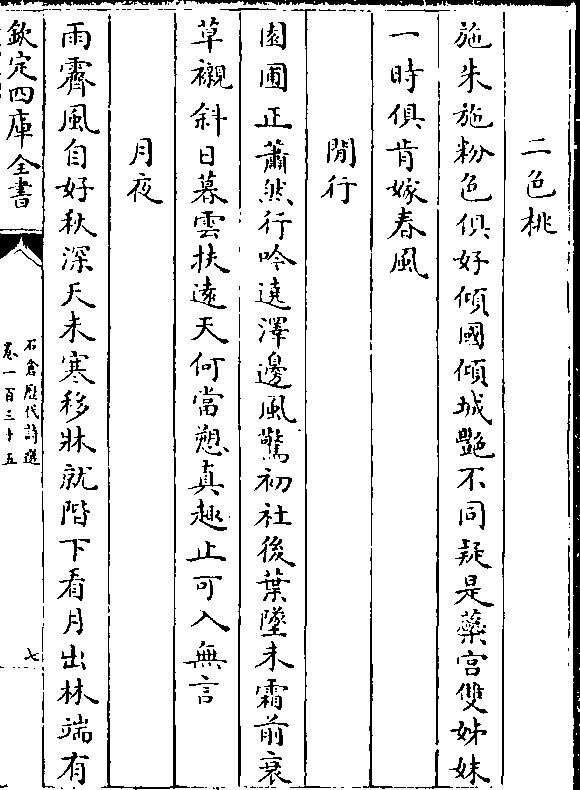 二色桃
施朱施粉色俱好傾國傾城艷不同疑是蘂宫雙姊妹
一時俱肯嫁春風
閒行
園圃正蕭然行吟遶澤邊風驚初社後葉墜未霜前衰
草襯斜日暮雲扶遠天何當憩真趣止可入無言
月夜
雨霽風自好秋深天未寒移牀就階下看月出林端有
欽定四庫全書
石倉歷代詩選
卷一百三十五
七